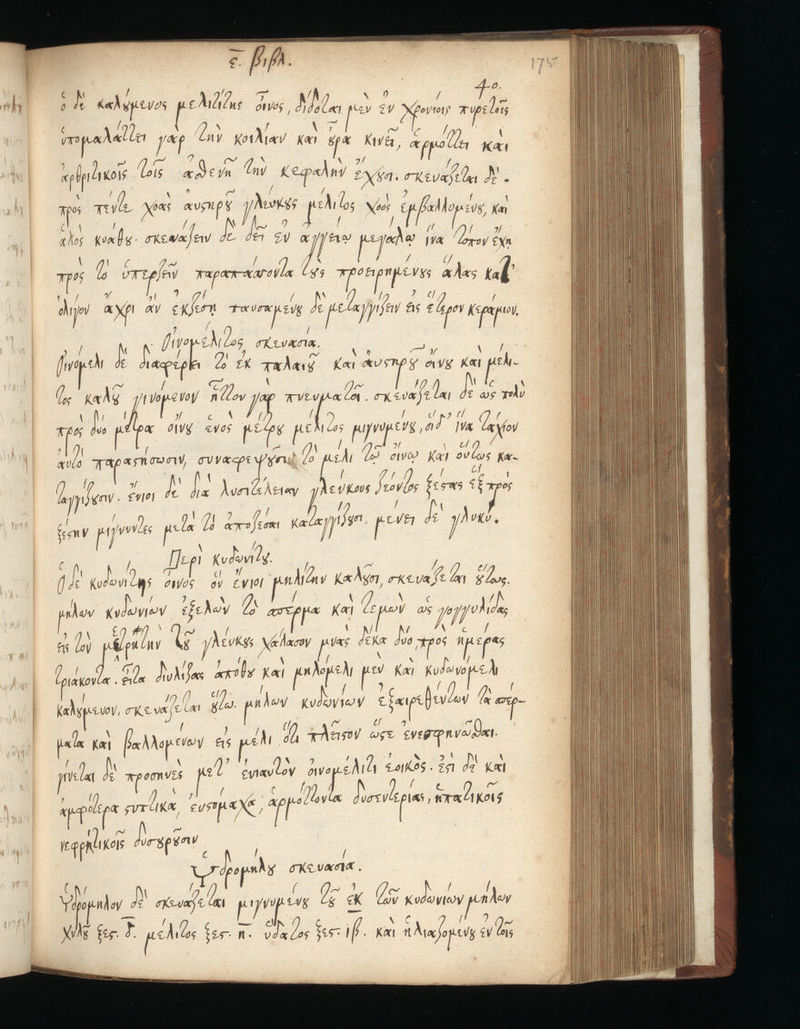 ε̄. βιβλ. 175
40.
ὁ δὲ καλούμενος μελιτίτης οἶνος, δίδοται μὲν ἐν χρονίοις πυρετοῖς
ὑπομαλάττει γὰρ τὴν κοιλίαν καὶ οὖρα κινεῖ, ἁρμόττει καὶ
ἀρθριτικοῖς τοῖς ἀσθενῆ τὴν κεφαλὴν ἔχουσι. σκευάζεται δὲ.
πρὸς πέντε χοὰς αὐστηροῦ γλεύκους μέλιτος χοὸς ἐμβαλλομένου, καὶ
ἁλὸς κυάθου. σκευάζειν δὲ δεῖ ἐν ἀγγείῳ μεγάλῳ ἵνα τόπον ἔχῃ
πρὸς τὸ ὑπερζεῖν παραπάσσοντα τοὺς προειρημένους ἅλας κατ'
ὀλίγον ἄχρι ἂν ἐκζέσῃ παυσαμένου δὲ μεταγγίζειν εἰς ἕτερον κεράμιον.
Οἰνομέλιτος σκευασία.
Οἰνόμελι δὲ διαφέρει τὸ ἐκ παλαιοῦ καὶ αὐστηροῦ οἴνου καὶ μέλι-
τος καλοῦ γινόμενον ἧττον γὰρ πνευματοῖ. σκευάζεται δὲ ὡς πολὺ
πρὸς δύο μέτρα οἴνου ἑνὸς μέτρου μέλιτος μιγνυμένου, οἱ δ' ἵνα τάχιον
αὐτὸ παραστήσωσιν, συναφεψοῦσι τὸ μέλι τῷ οἴνῳ καὶ οὕτως κα-
ταγγίζουσιν. ἔνιοι δὲ διὰ λυσιτέλειαν γλεύκους ζέοντος ξέστας ἓξ πρὸς
ξέστην μίγνυντες μετὰ τὸ ἀποζέσαι καταγγίζουσι. μένει δὲ γλυκύ.
Περὶ κυδωνίτου.
Ὁ δὲ κυδωνίτης οἶνος ὃν ἔνιοι μηλίτην καλοῦσι, σκευάζεται οὕτως.
μήλων κυδωνίων ἐξελὼν τὸ σπέρμα καὶ τεμὼν ὡς γογγυλίδας
εἰς τὸν μετρητὴν τοῦ γλεύκους χάλασον μνᾶς δέκα δύο, πρὸς ἡμέρας
τριάκοντα. εἶτα διυλίσας ἀπόθου καὶ μηλόμελι μὲν καὶ κυδωνόμελι
καλούμενον, σκευάζεται οὕτω. μήλων κυδωνίων ἐξαιρεθέντων τὰ σπέρ-
ματα καὶ βαλλομένων εἰς μέλι ὅτι πλεῖστον ὥστε ἐνεσφηνῶσθαι.
γίνεται δὲ προσηνὲς μετ' ἐνιαυτὸν οἰνομέλιτι ἐοικὸς. ἐστὶ δὲ καὶ
ἀμφότερα στυπτικὰ, εὐστόμαχα, ἁρμόττοντα δυσεντερίας, ἡπατικοῖς
νεφριτικοῖς δυσουροῦσιν
Ὑδρομήλου σκευασία.
Ὑδρόμηλον δὲ σκευάζεται μιγνυμένου τοῦ ἐκ τῶν κυδωνίων μήλων
χυλοῦ ξεσ. δ̄. μέλιτος ξεσ. η̄. ὕδατος ξεσ. ιβ̄. καὶ ἡλιαζομένου ἐν τοῖς